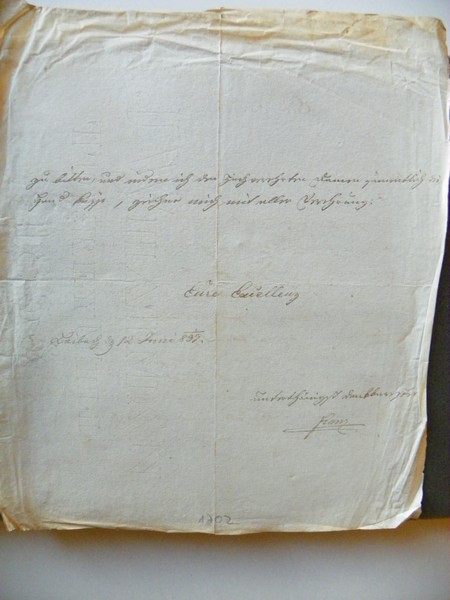 zu bitten, und indem ich den Hochverehrten Damen sämmtlich die
Hand küsse, zeichne mich mit aller Verehrung.
Eure Excellenz
Laibach d 12 Juni 837.
unterthänigst dankbarster
Franz
1702